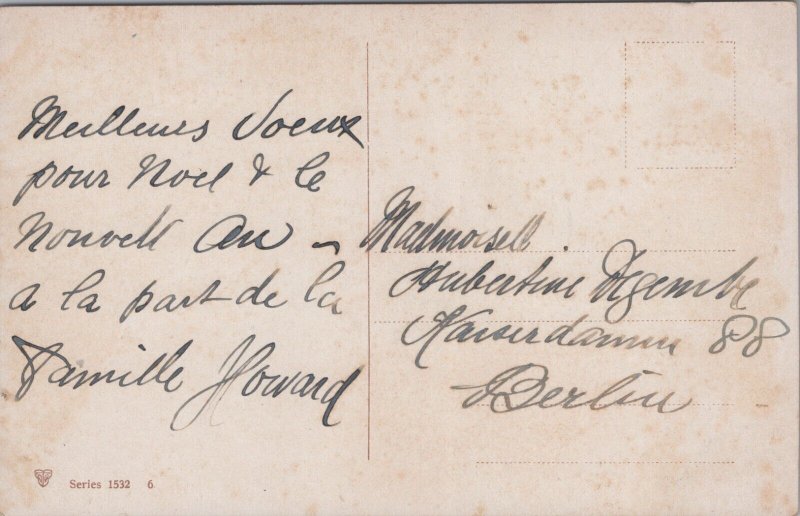 Meilleurs Voeux
pour Noel & le
Nouvell An –
a la part de la
Famille Howard
Mademoisell.
Hubertine
Kaiserdamm 88
Berlin
Series 1532 6